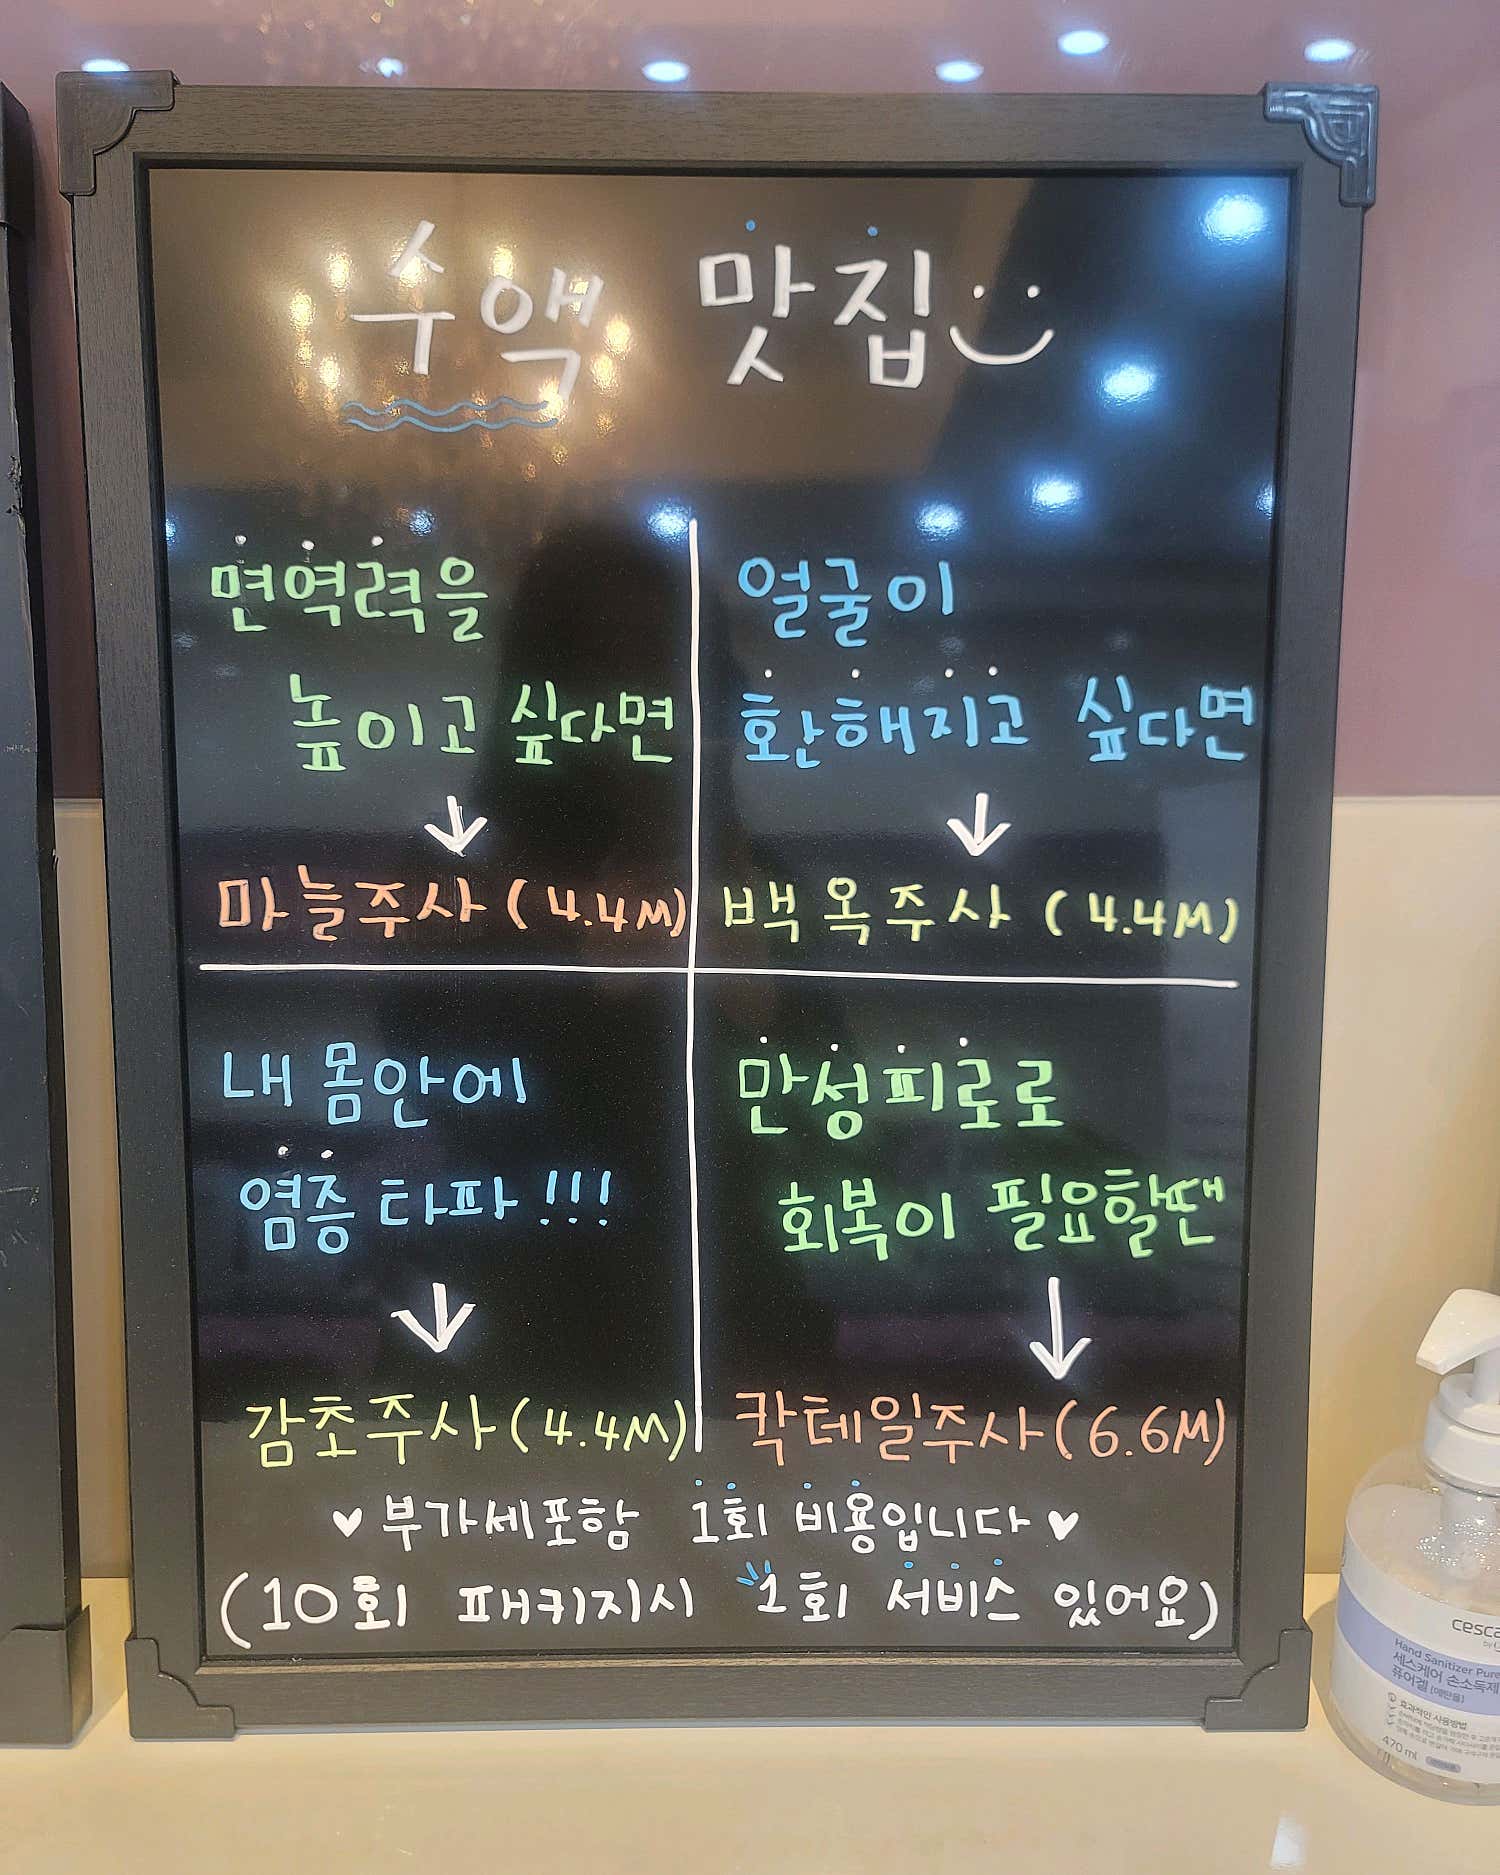 수액 맛집
면역력을
높이고 싶다면
마늘주사 (4.4M)
얼굴이
환해지고 싶다면
백옥주사 (4.4M)
내 몸안에
염증 타파!!!
감초주사 (4.4M)
만성피로로
회복이 필요할땐
칵테일주사 (6.6M)
♥ 부가세포함 1회 비용입니다 ♥
(10회 패키지시 1회 서비스 있어요)
Hand Sanitizer Pure
세스케어 손소독제
퓨어겔 (에탄올)
효과적인 사용방법
470 ml